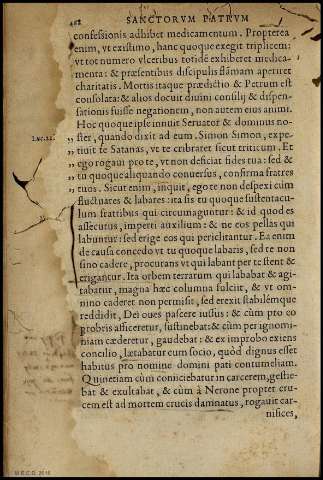 482 SANCTORVM PATRVM
confessionis adhibet medicamentum. Propterea
enim, vt existimo, hanc quoque exegit triplicem:
vt tot numero vlceribus totidē exhiberet medica-
menta: & præsentibus discipulis flāmam aperiret
charitatis. Mortis itaque prædictio & Petrum est
consolata: & alios docuit diuini consilij & dispen-
sationis fuisse negationem, non autem eius animi.
Hoc quoque iple innuit Seruator & dominus no-
Luc.22. „ster, quando dixit ad eum. Simon Simon, expe-
„tiuit te Satanas, vt te cribraret sicut triticum. Et
„ego rogaui pro te, vt non deficiat fides tua: sed &
„tu quoque aliquando conuersus, confirma fratres
„tuos. Sicut enim, inquit, ego te non despexi cùm
fluctuares & labares: ita sis tu quoque sustentacu-
lum fratribus qui circumaguntur: & id quod es
assecutus, imperti auxilium: & ne eos pellas qui
labuntur: sed erige eos qui periclitantur. Ea enim
de causa concedo vt tu quoque labaris, sed te non
sino cadere, procurans vt qui labant per te stent &
erigantur. Ita orbem terrarum qui lababat & agi-
tabatur, magna hæc columna fulciit, & vt om-
nino caderet non permisit, sed erexit stabilémque
reddidit, Dei oues pascere iussus: & cùm pro eo
probris afficeretur, sustinebat: & cùm per ignomi-
niam cæderetur, gaudebat: & ex improbo exiens
concilio, lætabatur cum socio, quòd dignus esset
habitus pro nomine domini pati contumeliam.
Quinetiam cùm coniiciebatur in carcerem, gestie-
bat & exultabat, & cùm à Nerone propter cru-
cem est ad mortem crucis damnatus, rogauit car-
nifices,